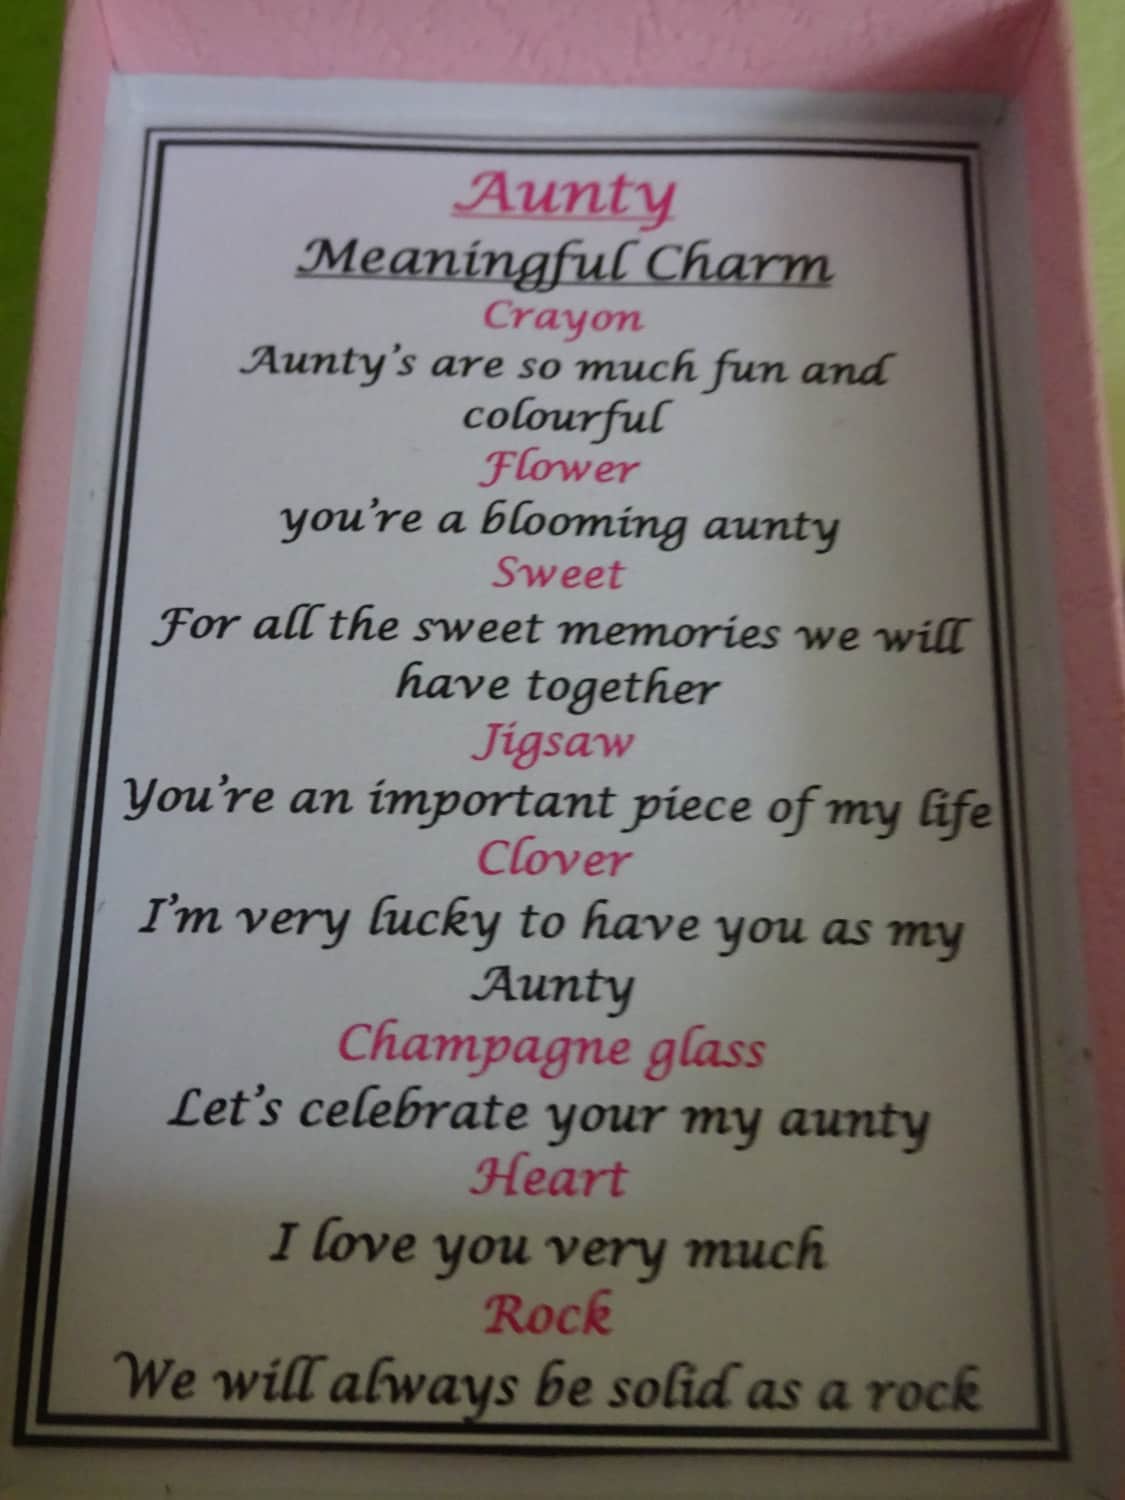 Aunty
Meaningful Charm
Crayon
Aunty's are so much fun and
colourful
Flower
you're a blooming aunty
Sweet
For all the sweet memories we will
have together
Jigsaw
You're an important piece of my life
Clover
I'm very lucky to have you as my
Aunty
Champagne glass
Let's celebrate your my aunty
Heart
I love you very much
Rock
We will always be solid as a rock